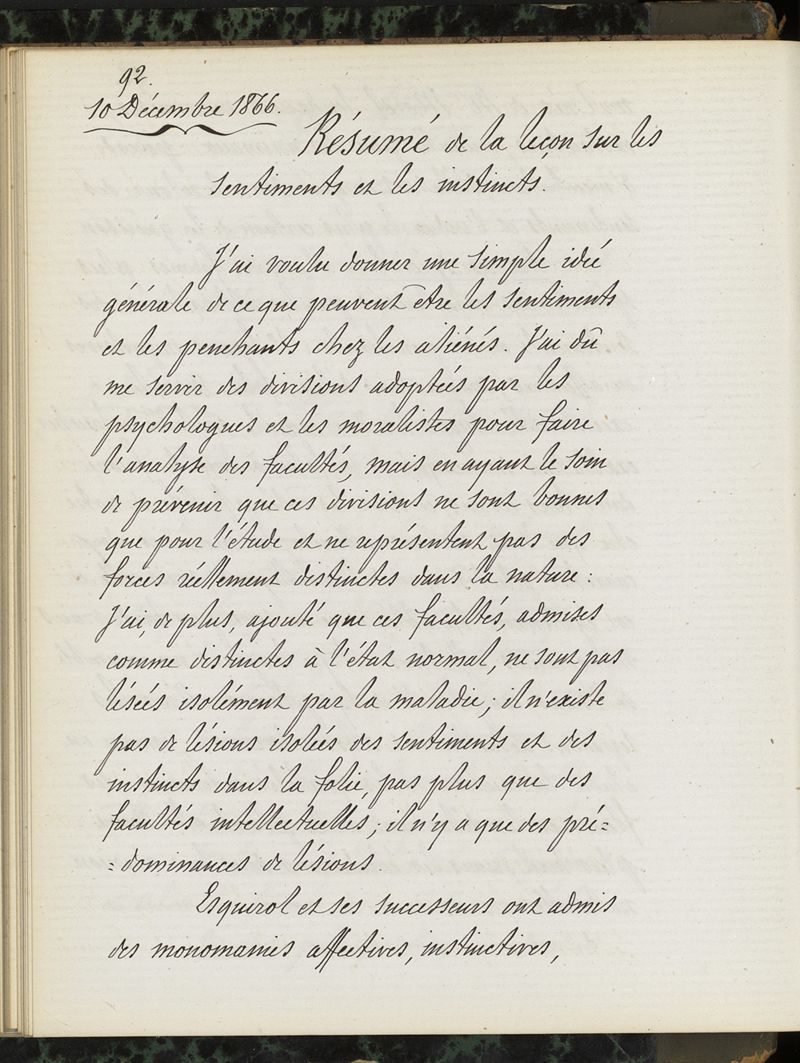 92.
10 Décembre 1866.
Résumé de la leçon sur les
sentiments et les instincts.
J'ai voulu donner une simple idée
générale de ce que peuvent être les sentiments
et les penchants chez les aliénés. J'ai dû
me servir des divisions adoptées par les
psychologues et les moralistes pour faire
l'analyse des facultés, mais en ayant le soin
de prévenir que ces divisions ne sont bonnes
que pour l'étude et ne représentent pas des
forces réellement distinctes dans la nature :
J'ai, de plus, ajouté que ces facultés, admises
comme distinctes à l'état normal, ne sont pas
lésées isolément par la maladie ; il n'existe
pas de lésions isolées des sentiments et des
instincts dans la folie, pas plus que des
facultés intellectuelles ; il n'y a que des pré=
=dominances de lésions
Esquirol et ses successeurs ont admis
des monomanies affectives, instinctives,